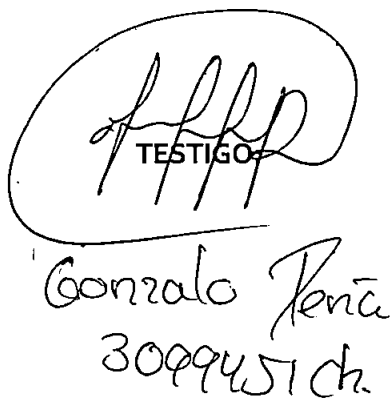 TESTIGO
Gonzalo Peña
3099451 Ch.